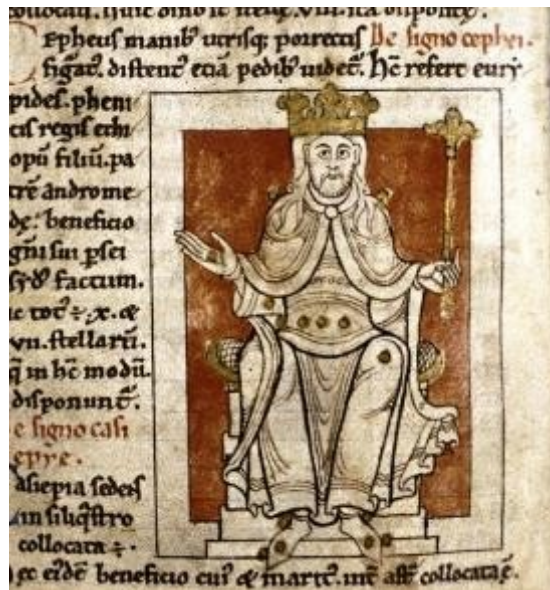 collocati. huic
Cepheus manib' utrisq; porrectis De signo cephei.
figat'. distentˀ etiā pedib' uidetˀ. hc̄ refert eury
pides. pheni
cis regis ethi
opū filiū. pa
trē androme
dę. beneficio
gn̄i sui ꝑsei
factum.
ic totˀ ÷ .x. &
vii. stellarū.
q̄ in hc̄ modū.
disponuntˀ.
e signo casi
epye.
asiepia sedens
in siliq̄stro
collocata ÷.
ex eidē beneficio cui' & maritˀ. int̄ ast̄ collocata ē.